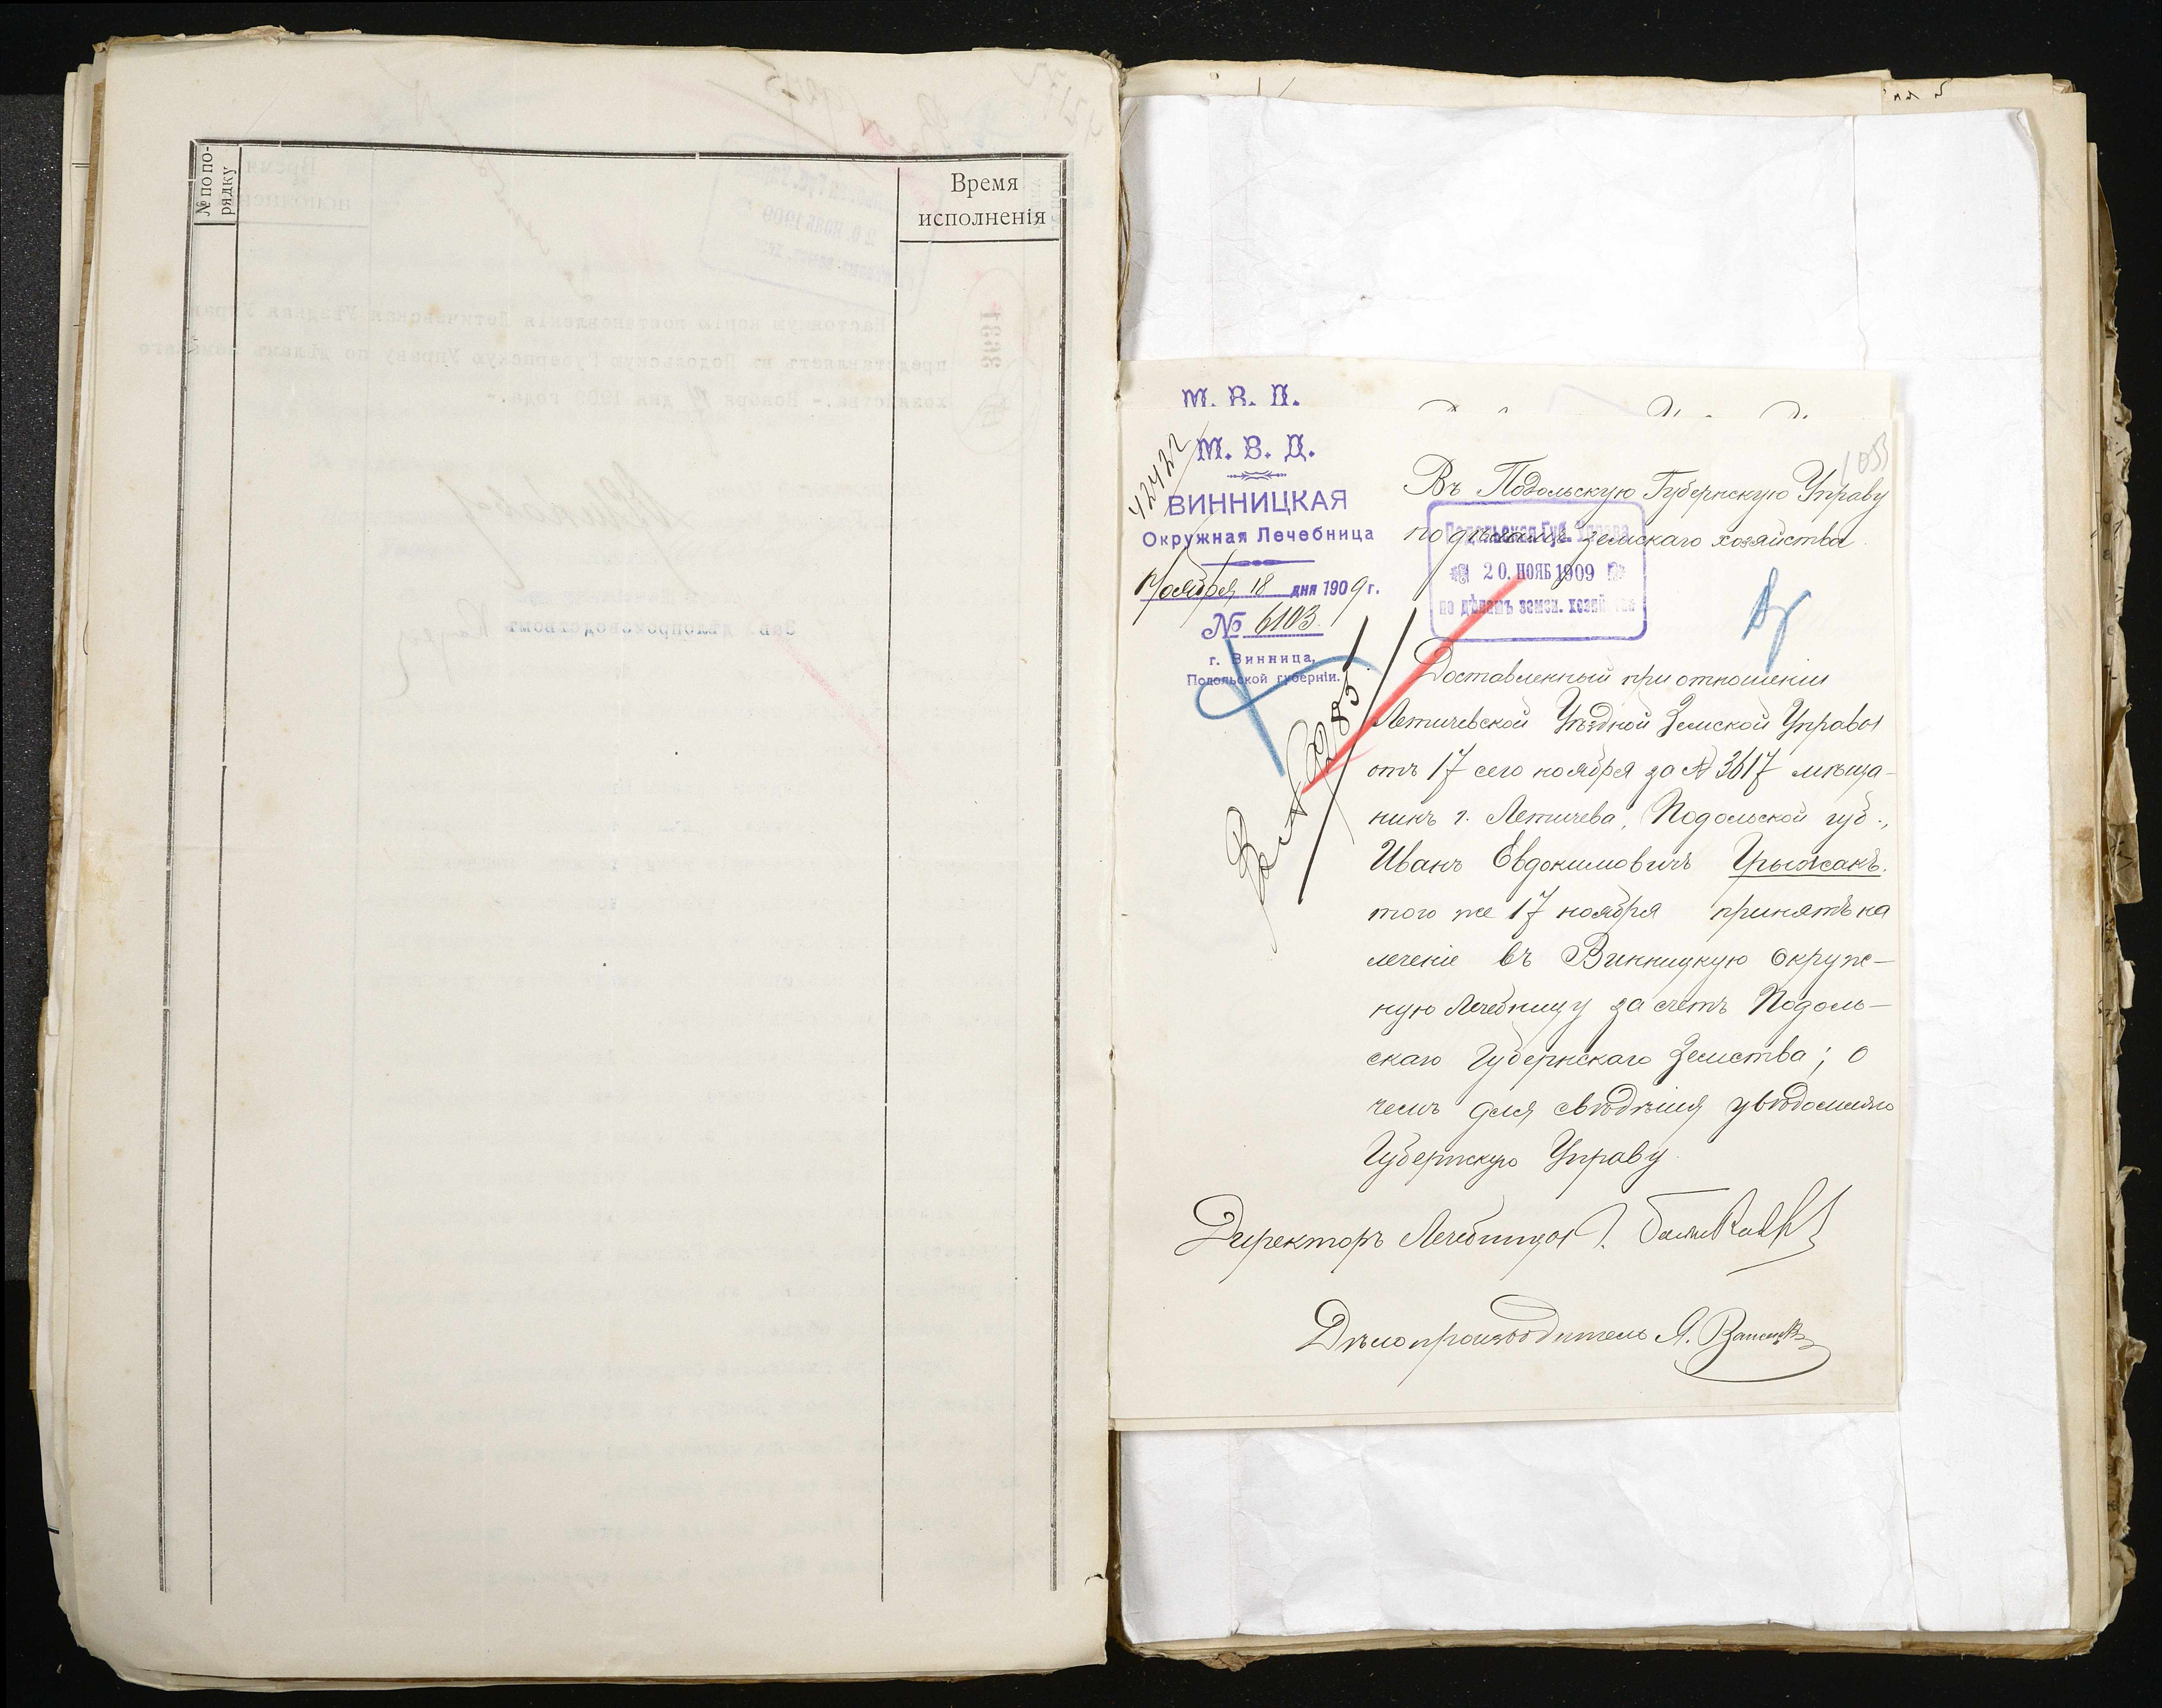 № по по-
рядку
Время
исполненія
М. В. Д.
М. В. Д.
42422
ВИННИЦКАЯ
Окружная Лечебница
Ноября 18 дня 1909 г.
№ 6103.
г. Винница,
Подольской губерніи.
1053
Въ Подольскую Губернскую Управу
по дѣламъ земскаго хозяйства.
Подольская Губ. Управа
20. НОЯБ 1909
по дѣламъ земск. хозяйства
Доставленный при отношеніи
Летичевской Уѣздной Земской Управы
отъ 17 сего ноября за № 3617 мѣща-
нинъ г. Летичева, Подольской губ.,
Иванъ Евдокимовичъ
того же 17 ноября принятъ на
леченіе въ Винницкую Окруж-
ную Лечебницу за счетъ Подоль-
скаго Губернскаго Земства; о
чемъ для свѣдѣнія увѣдомляю
Губернскую Управу.
Директоръ Лечебницы
Дѣлопроизводитель Я.